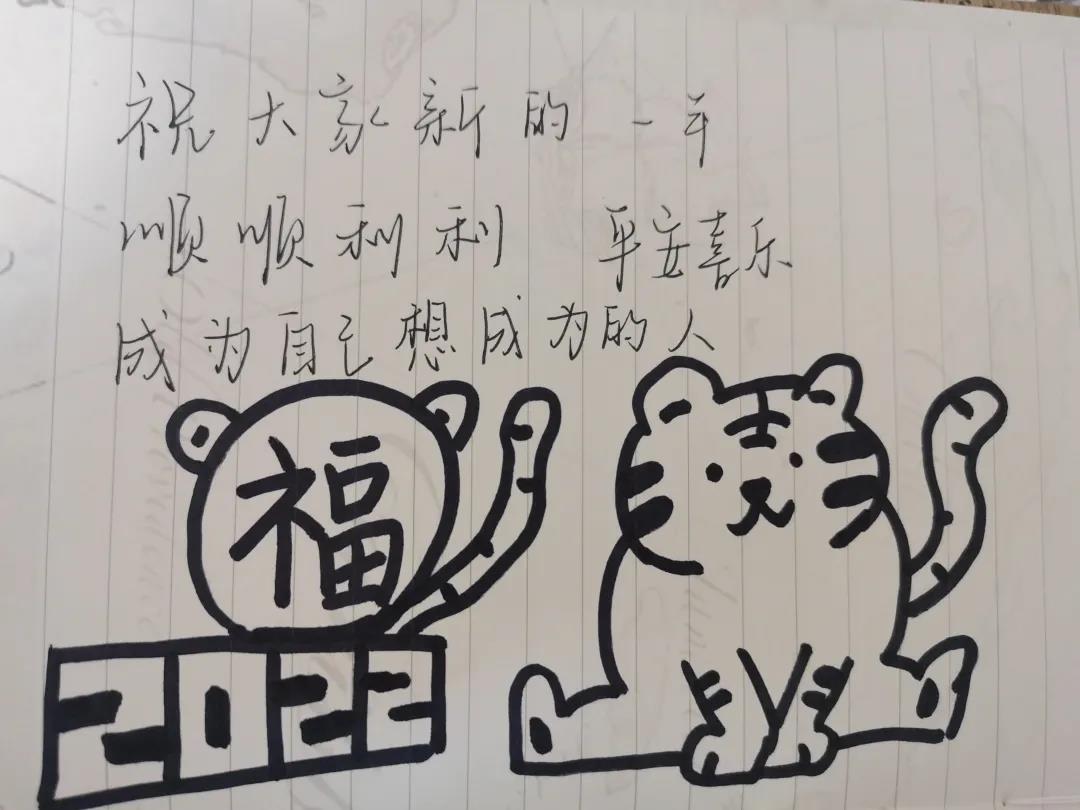 祝大家新的一年
顺顺利利 平安喜乐
成为自己想成为的人
福
2022